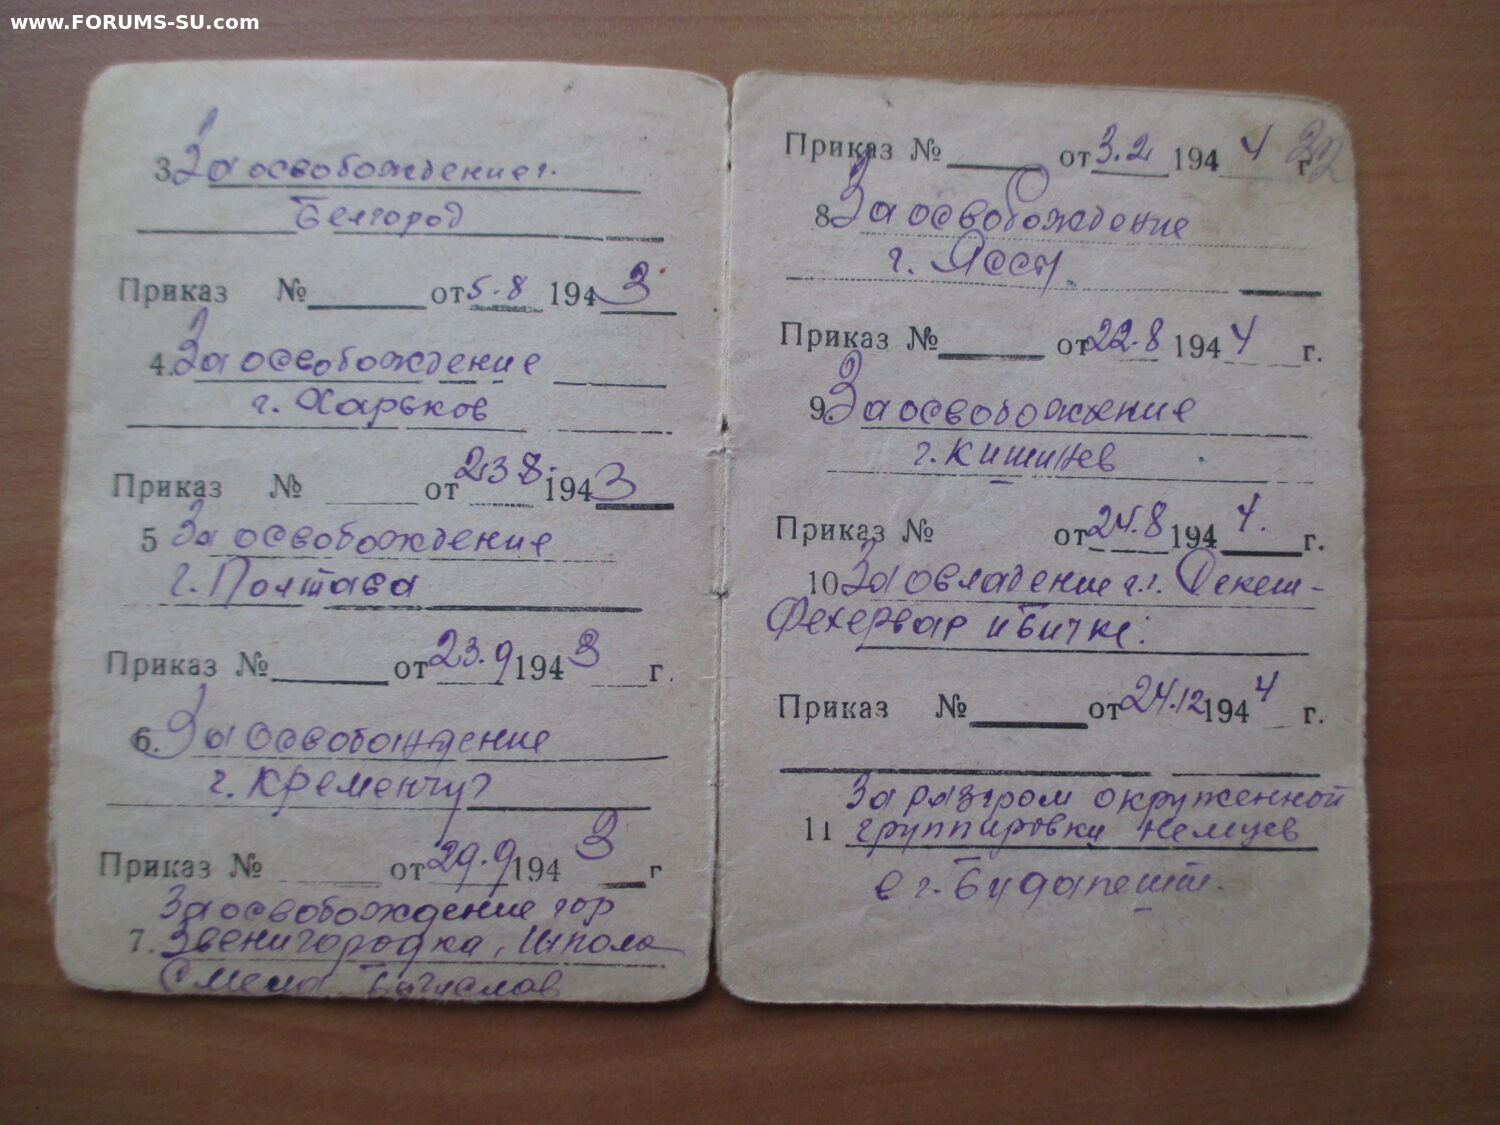 www.FORUMS-SU.com
3 За освобождение г.
Белгород
Приказ № от 5.8 1943
4. За освобождение
г. Харьков
Приказ № от 23 8. 1943
5 За освобождение
г. Полтава
Приказ № от 23.9 1943 г.
6. За освобождение
г. Кременчуг
Приказ № от 29.9 1943 г
За освобождение гор
7. Звенигородка, Шпола
Смела Богуслав
Приказ № от 3.2 1944 г
8 За освобождение
г. Яссы.
Приказ № от 22.8 1944 г.
9. За освобождение
г. Кишинев
Приказ № от 24.8 1944. г.
10 За овладение г.г. Секеш-
Фехервар и Бичке.
Приказ № от 24.12 1944 г.
За разгром окруженной
11 группировки немцев
в г. Будапешт.